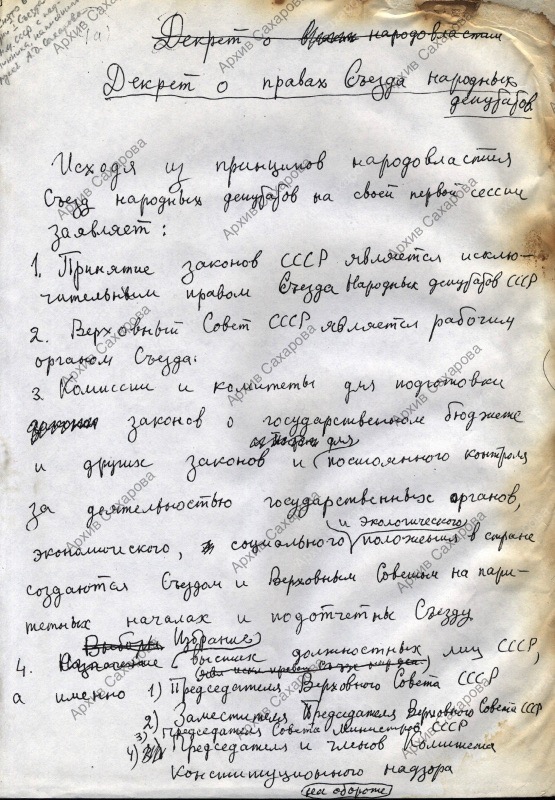 (а)
Декрет о народовластии
Декрет о правах Съезда народных
депутатов
Исходя из принципов народовластия
Съезд народных депутатов на своей первой сессии
заявляет:
1. Принятие законов СССР является исклю-
чительным правом Съезда Народных депутатов СССР
2. Верховный Совет СССР является рабочим
органом Съезда.
3. Комиссии и комитеты для подготовки
законов о государственном бюджете
и других законов и постоянного контроля
за деятельностью государственных органов,
и экологического
экономического, социального положения в стране
создаются Съездом и Верховным Советом на пари-
тетных началах и подотчетны Съезду
Выборы Избрание
4. Назначение высших должностных лиц СССР,
а именно 1) Председателя Верховного Совета СССР
2) Заместителя Председателя Верховного Совета СССР
3) Председателя Совета Министров СССР
4) Председателя и членов Комитета
Конституционного надзора
на обороте
Архив Сахарова